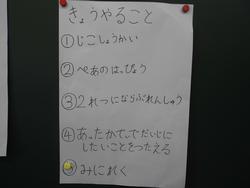 きょうやること
①じこしょうかい
②ぺあのはっぴょう
③2れつにならぶれんしゅう
④あったかてぃでだいじに
したいことをつたえる
⑤みにれく